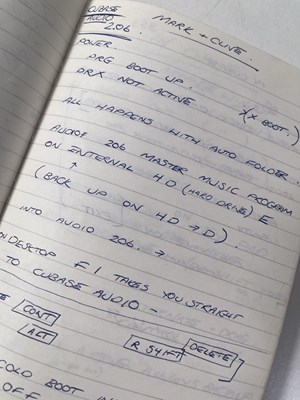 CUBASE
AUDIO
2.06.
MARK + CLIVE.
POWER.
PRG BOOT UP.
DRX NOT ACTIVE
(X BOOT.)
ALL HAPPENS WITH AUTO FOLDER.
AUDIOF 206 MASTER MUSIC PROGRAM
ON INTERNAL HD (HARD DRIVE) E
↑
(BACK UP ON HD → D).
INTO AUDIO 206. →
ON DESKTOP F1 TAKES YOU STRAIGHT
TO CUBASE AUDIO -
CONT
ALT
R SHIFT
DELETE
COLD BOOT
OFF